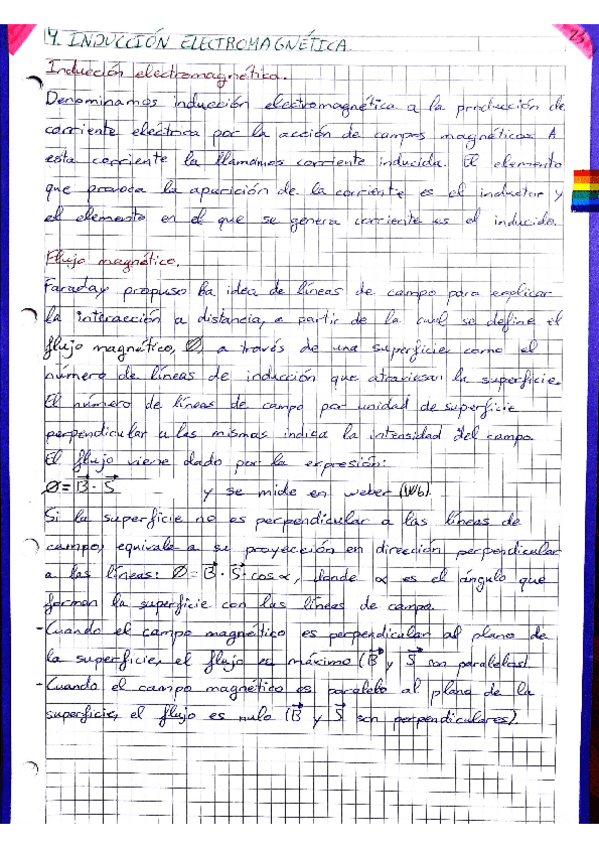 4. INDUCCIÓN ELECTROMAGNÉTICA.
23
Inducción electromagnética.
Denominamos inducción electromagnética a la producción de
corriente eléctrica por la acción de campos magnéticos. A
esta corriente la llamamos corriente inducida. El elemento
que provoca la aparición de la corriente es el inductor y
el elemento en el que se genera corriente es el inducido.
Flujo magnético.
Faraday propuso la idea de líneas de campo para explicar
la interacción a distancia, a partir de la cual se define el
flujo magnético, Ø, a través de una superficie como el
número de líneas de inducción que atraviesan la superficie.
El número de líneas de campo por unidad de superficie
perpendicular a las mismas indica la intensidad del campo.
El flujo viene dado por la expresión:
Ø = B⃗ · S⃗ y se mide en weber (Wb).
Si la superficie no es perpendicular a las líneas de
campo, equivale a su proyección en dirección perpendicular
a las líneas: Ø = B⃗ · S⃗ · cos α, donde α es el ángulo que
forman la superficie con las líneas de campo.
- Cuando el campo magnético es perpendicular al plano de
la superficie, el flujo es máximo (B⃗ y S⃗ son paralelas).
- Cuando el campo magnético es paralelo al plano de la
superficie, el flujo es nulo (B⃗ y S⃗ son perpendiculares).